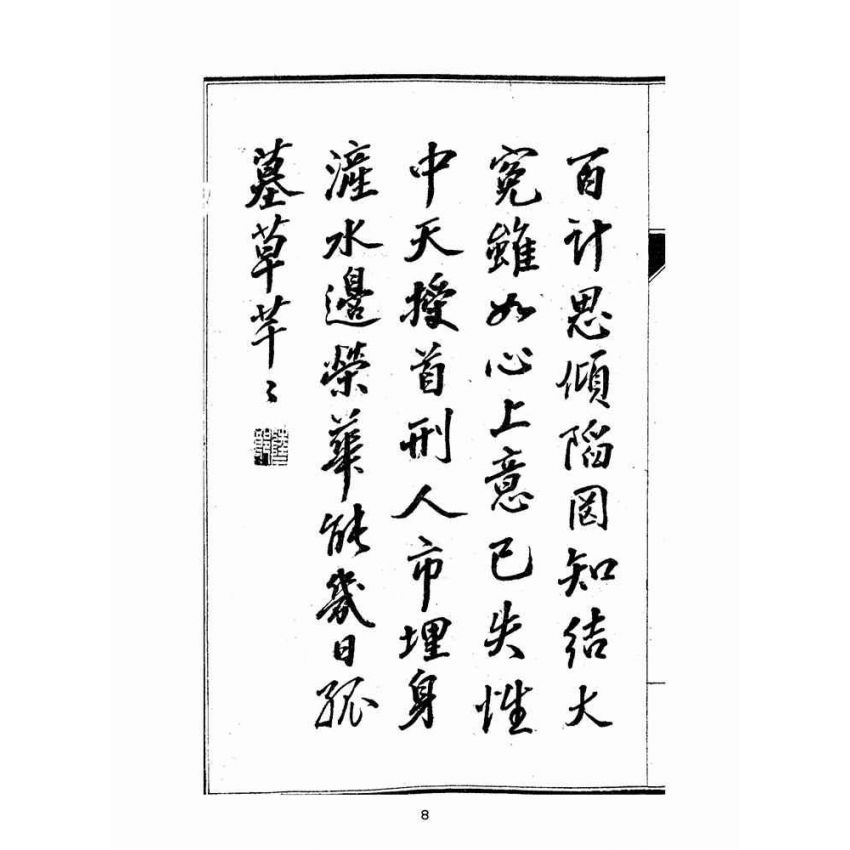 百计思傾陷罔知结大
冤雖如心上意已失性
中天授首刑人市埋身
滻水邊榮華能幾日孤
墓草芊〻
8